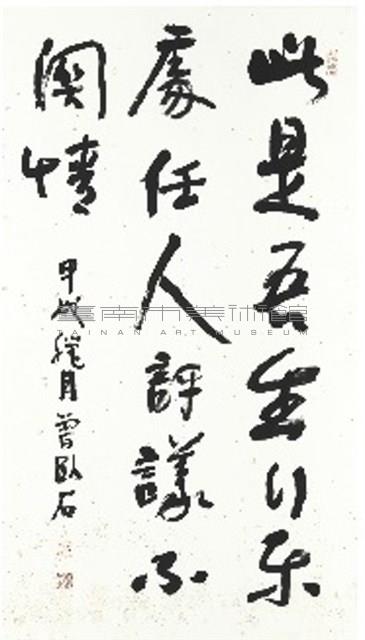 此是吾生行乐
處任人評議不
關情
甲戌臘月曾臥石
臺南市美術館
TAINAN ART MUSEUM